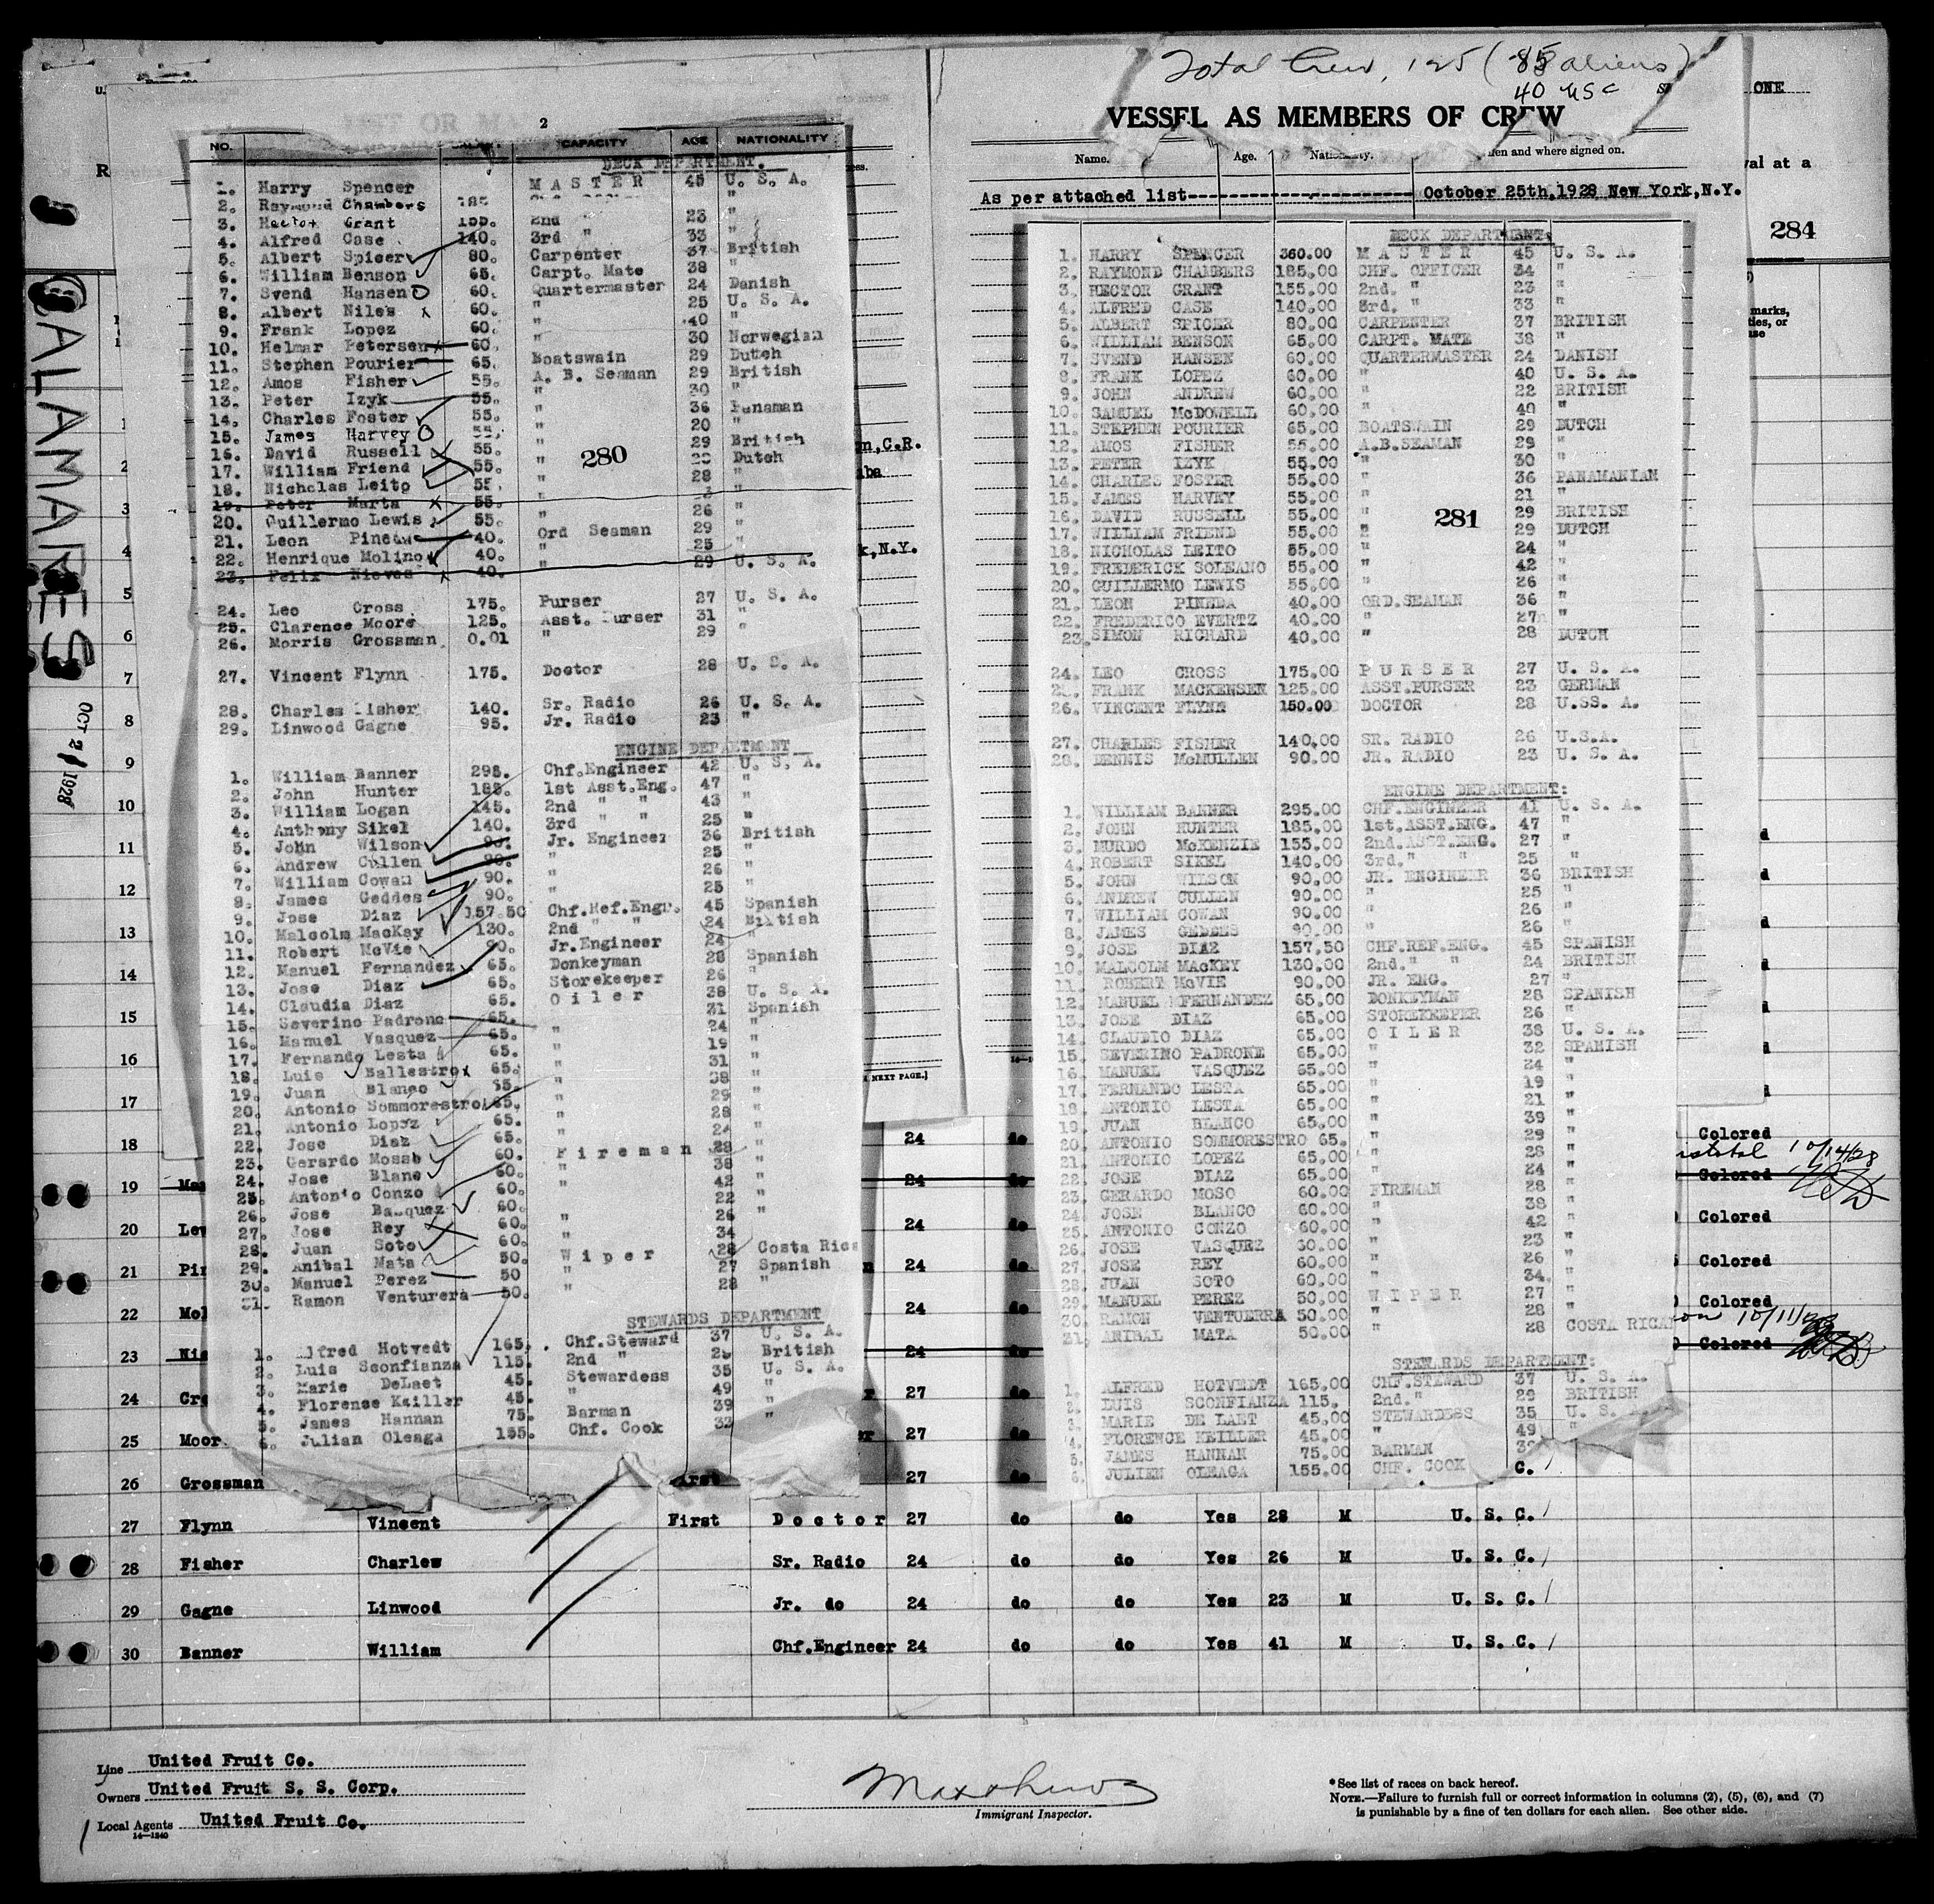 Total Crew, 125 (85 aliens)
40 USC
ONE
VESSEL AS MEMBERS OF CREW
Name. Age. Nationality. When and where signed on.
As per attached list October 25th,1928 New York,N.Y.
val at a
284
CALAMARES
OCT 21 1928
2
NO. CAPACITY AGE NATIONALITY
DECK DEPARTMENT.
1. Harry Spencer MASTER 45 U. S. A.
2. Raymond Chambers 185 "
3. Hector Grant 155. 2nd " 23 "
4. Alfred Case 140. 3rd " 33 "
5. Albert Spicer 80. Carpenter 37 British
6. William Benson 65. Carpt. Mate 38 "
7. Svend Hansen 60. Quartermaster 24 Danish
8. Albert Niles 60. " 25 U. S. A.
9. Frank Lopez 60. " 40 "
10. Helmar Petersen 60. " 30 Norwegian
11. Stephen Pourier 65. Boatswain 29 Dutch
12. Amos Fisher 55. A. B. Seaman 29 British
13. Peter Izyk 55. " 30 "
14. Charles Foster 55. " 36 Panaman
15. James Harvey 55. " 20 "
16. David Russell 55. " 29 British
17. William Friend 55. " Dutch
18. Nicholas Leito 55. " 28 "
19. Peter Marta 55. " "
20. Guillermo Lewis 55. " 26 "
21. Leon Pineda 40. Ord Seaman 29 "
22. Henrique Molino 40. " 25 "
23. Felix Nieves 40. " 29 U. S. A.
280
24. Leo Cross 175. Purser 27 U. S. A.
25. Clarence Moore 125. Asst. Purser 31 "
26. Morris Grossman 0.01 " 29 "
27. Vincent Flynn 175. Doctor 28 U. S. A.
28. Charles Fisher 140. Sr. Radio 26 U. S. A.
29. Linwood Gagne 95. Jr. Radio 23 "
ENGINE DEPARTMENT
1. William Banner 295. Chf.Engineer 42 U. S. A.
2. John Hunter 185. 1st Asst.Eng. 47 "
3. William Logan 145. 2nd " " 43 "
4. Anthony Sikel 140. 3rd " " 25 "
5. John Wilson 90. Jr. Engineer 36 British
6. Andrew Cullen 90. " 25 "
7. William Cowan 90. " 26 "
8. James Geddes 90. " 25 "
9. Jose Diaz 157.50 Chf.Ref.Engr. 45 Spanish
10. Malcolm MacKay 130. 2nd " " 24 British
11. Robert McVie 90. Jr.Engineer 24 "
12. Manuel Fernandez 65. Donkeyman 28 Spanish
13. Jose Diaz 65. Storekeeper 26 "
14. Claudia Diaz 65. Oiler 38 U. S. A.
15. Severino Padrone 65. " 31 Spanish
16. Manuel Vasquez 65. " 24 "
17. Fernando Lesta 65. " 19 "
18. Luis Ballestro 65. " 31 "
19. Juan Blanco 65. " 38 "
20. Antonio Sommorestro 65. " 29 "
21. Antonio Lopez 65. " 28 "
22. Jose Diaz 65. " 24 "
23. Gerardo Mosso 60. Fireman 28 "
24. Jose Blanc 60. " 38 "
25. Antonio Conzo 60. " 42 "
26. Jose Basquez 60. " 22 "
27. Jose Rey 60. " 26 "
28. Juan Soto 60. " 34
29. Anibal Mata 50. Wiper 28 Costa Rica
30. Manuel Perez 50 " 27 Spanish
31. Ramon Venturera 50. " 28 "
STEWARDS DEPARTMENT
1. Alfred Hotvedt 165. Chf.Steward 37 U. S. A.
2. Luis Sconfianza 115. 2nd " British
3. Marie DeLaet 45. Stewardess 35 U. S. A.
4. Florence Keiller 45. " 49 "
5. James Hannan 75. Barman 39 "
6. Julian Oleaga 155. Chf. Cook 33 "
DECK DEPARTMENT:
1. HARRY SPENCER 360.00 MASTER 45 U. S. A.
2. RAYMOND CHAMBERS 185.00 CHF. OFFICER 34 "
3. HECTOR GRANT 155.00 2nd. " 23 "
4. ALFRED CASE 140.00 3rd. " 33 "
5. ALBERT SPICER 80.00 CARPENTER 37 BRITISH
6. WILLIAM BENSON 65.00 CARPT. MATE 38 "
7. SVEND HANSEN 60.00 QUARTERMASTER 24 DANISH
8. FRANK LOPEZ 60.00 " 40 U. S. A.
9. JOHN ANDREW 60.00 " 22 BRITISH
10. SAMUEL McDOWELL 60.00 " 40 "
11. STEPHEN POURIER 65.00 BOATSWAIN 29 DUTCH
12. AMOS FISHER 55.00 A.B.SEAMAN 29 "
13. PETER IZYK 55.00 " 30 "
14. CHARLES FOSTER 55.00 " 36 PANAMANIAM
15. JAMES HARVEY 55.00 " 21 "
16. DAVID RUSSELL 55.00 " 29 BRITISH
17. WILLIAM FRIEND 55.00 " 29 DUTCH
18. NICHOLAS LEITO 55.00 " 24 "
19. FREDERICK SOLEANO 55.00 " 42 "
20. GUILLERMO LEWIS 55.00 " 26 "
21. LEON PINEDA 40.00 ORD.SEAMAN 36 "
22. FREDERICO EVERTZ 40.00 " 27 "
23. SIMON RICHARD 40.00 " 28 DUTCH
281
24. LEO CROSS 175.00 PURSER 27 U. S. A.
25. FRANK MACKENSEN 125.00 ASST.PURSER 23 GERMAN
26. VINCENT FLYNN 150.00 DOCTOR 28 U.SS. A.
27. CHARLES FISHER 140.00 SR. RADIO 26 U.S.A.
28. DENNIS McMULLEN 90.00 JR. RADIO 23 U. S. A.
ENGINE DEPARTMENT:
1. WILLIAM BANNER 295.00 CHF.ENGINEER 41 U. S. A.
2. JOHN HUNTER 185.00 1st.ASST.ENG. 47 "
3. MURDO McKENZIE 155.00 2nd.ASST.ENG. 27 "
4. ROBERT SIKEL 140.00 3rd." " 25 "
5. JOHN WILSON 90.00 JR. ENGINEER 36 BRITISH
6. ANDREW CULLEN 90.00 " 25 "
7. WILLIAM COWAN 90.00 " 26 "
8. JAMES GEDDES 90.00 " 26 "
9. JOSE DIAZ 157.50 CHF.REF.ENG. 45 SPANISH
10. MALCOLM MACKEY 130.00 2nd." " 24 BRITISH
11. ROBERT McVIE 90.00 JR. ENG. 27 "
12. MANUEL MFERNANDEZ 65.00 DONKEYMAN 28 SPANISH
13. JOSE DIAZ 65.00 STOREKEEPER 26 "
14. CLAUDIO DIAZ 65.00 OILER 38 U. S. A.
15. SEVERINO PADRONE 65.00 " 32 SPANISH
16. MANUEL VASQUEZ 65.00 " 24 "
17. FERNANDO LESTA 65.00 " 19 "
18. ANTONIO LESTA 65.00 " 21 "
19. JUAN BLANCO 65.00 " 39 "
20. ANTONIO SOMMORESTRO 65. " 29 "
21. ANTONIO LOPEZ 65.00 " 28 "
22. JOSE DIAZ 65.00 " 24 "
23. GERARDO MOSO 60.00 FIREMAN 28 "
24. JOSE BLANCO 60.00 " 38 "
25. ANTONIO CONZO 60.00 " 42 "
26. JOSE VASQUEZ 60.00 " 23 "
27. JOSE REY 60.00 " 26 "
28. JUAN SOTO 60.00 " 34 "
29. MANUEL PEREZ 50.00 WIPER 27 "
30. RAMON VENTUERRA 50.00 " 28 "
31. ANIBAL MATA 50.00 " 28 COSTA RICAN
STEWARDS DEPARTMENT:
1. ALFRED HOTVEDT 165.00 CHF.STEWARD 37 U. S. A.
2. LUIS SCONFIANZA 115. 2nd. " 29 BRITISH
3. MARIE DE LAET 45.00 STEWARDESS 35 U. S. A.
4. FLORENCE KEILLER 45.00 " 49 "
5. JAMES HANNAN 75.00 BARMAN
6. JULIEN OLEAGA 155.00 CHF. COOK
n,C.R.
k,N.Y.
NEXT PAGE.]
18 24 do Colored
10/14/28
19 24 do Colored
20 Lew 24 do Colored
21 Pin 24 do Colored
22 Mol 24 do Colored
10/11/28
23 Nie 24 do Colored
24 Cro 27 do
25 Moor 27 do
26 Grossman 27 do
27 Flynn Vincent First Doctor 27 do do Yes 28 M U. S. C.
28 Fisher Charles Sr. Radio 24 do do Yes 26 M U. S. C.
29 Gagne Linwood Jr. do 24 do do Yes 23 M U. S. C.
30 Banner William Chf.Engineer 24 do do Yes 41 M U. S. C.
Line United Fruit Co.
Owners United Fruit S. S. Corp.
Local Agents United Fruit Co.
14—1240
Matthews
Immigrant Inspector.
*See list of races on back hereof.
NOTE.—Failure to furnish full or correct information in columns (2), (5), (6), and (7)
is punishable by a fine of ten dollars for each alien. See other side.